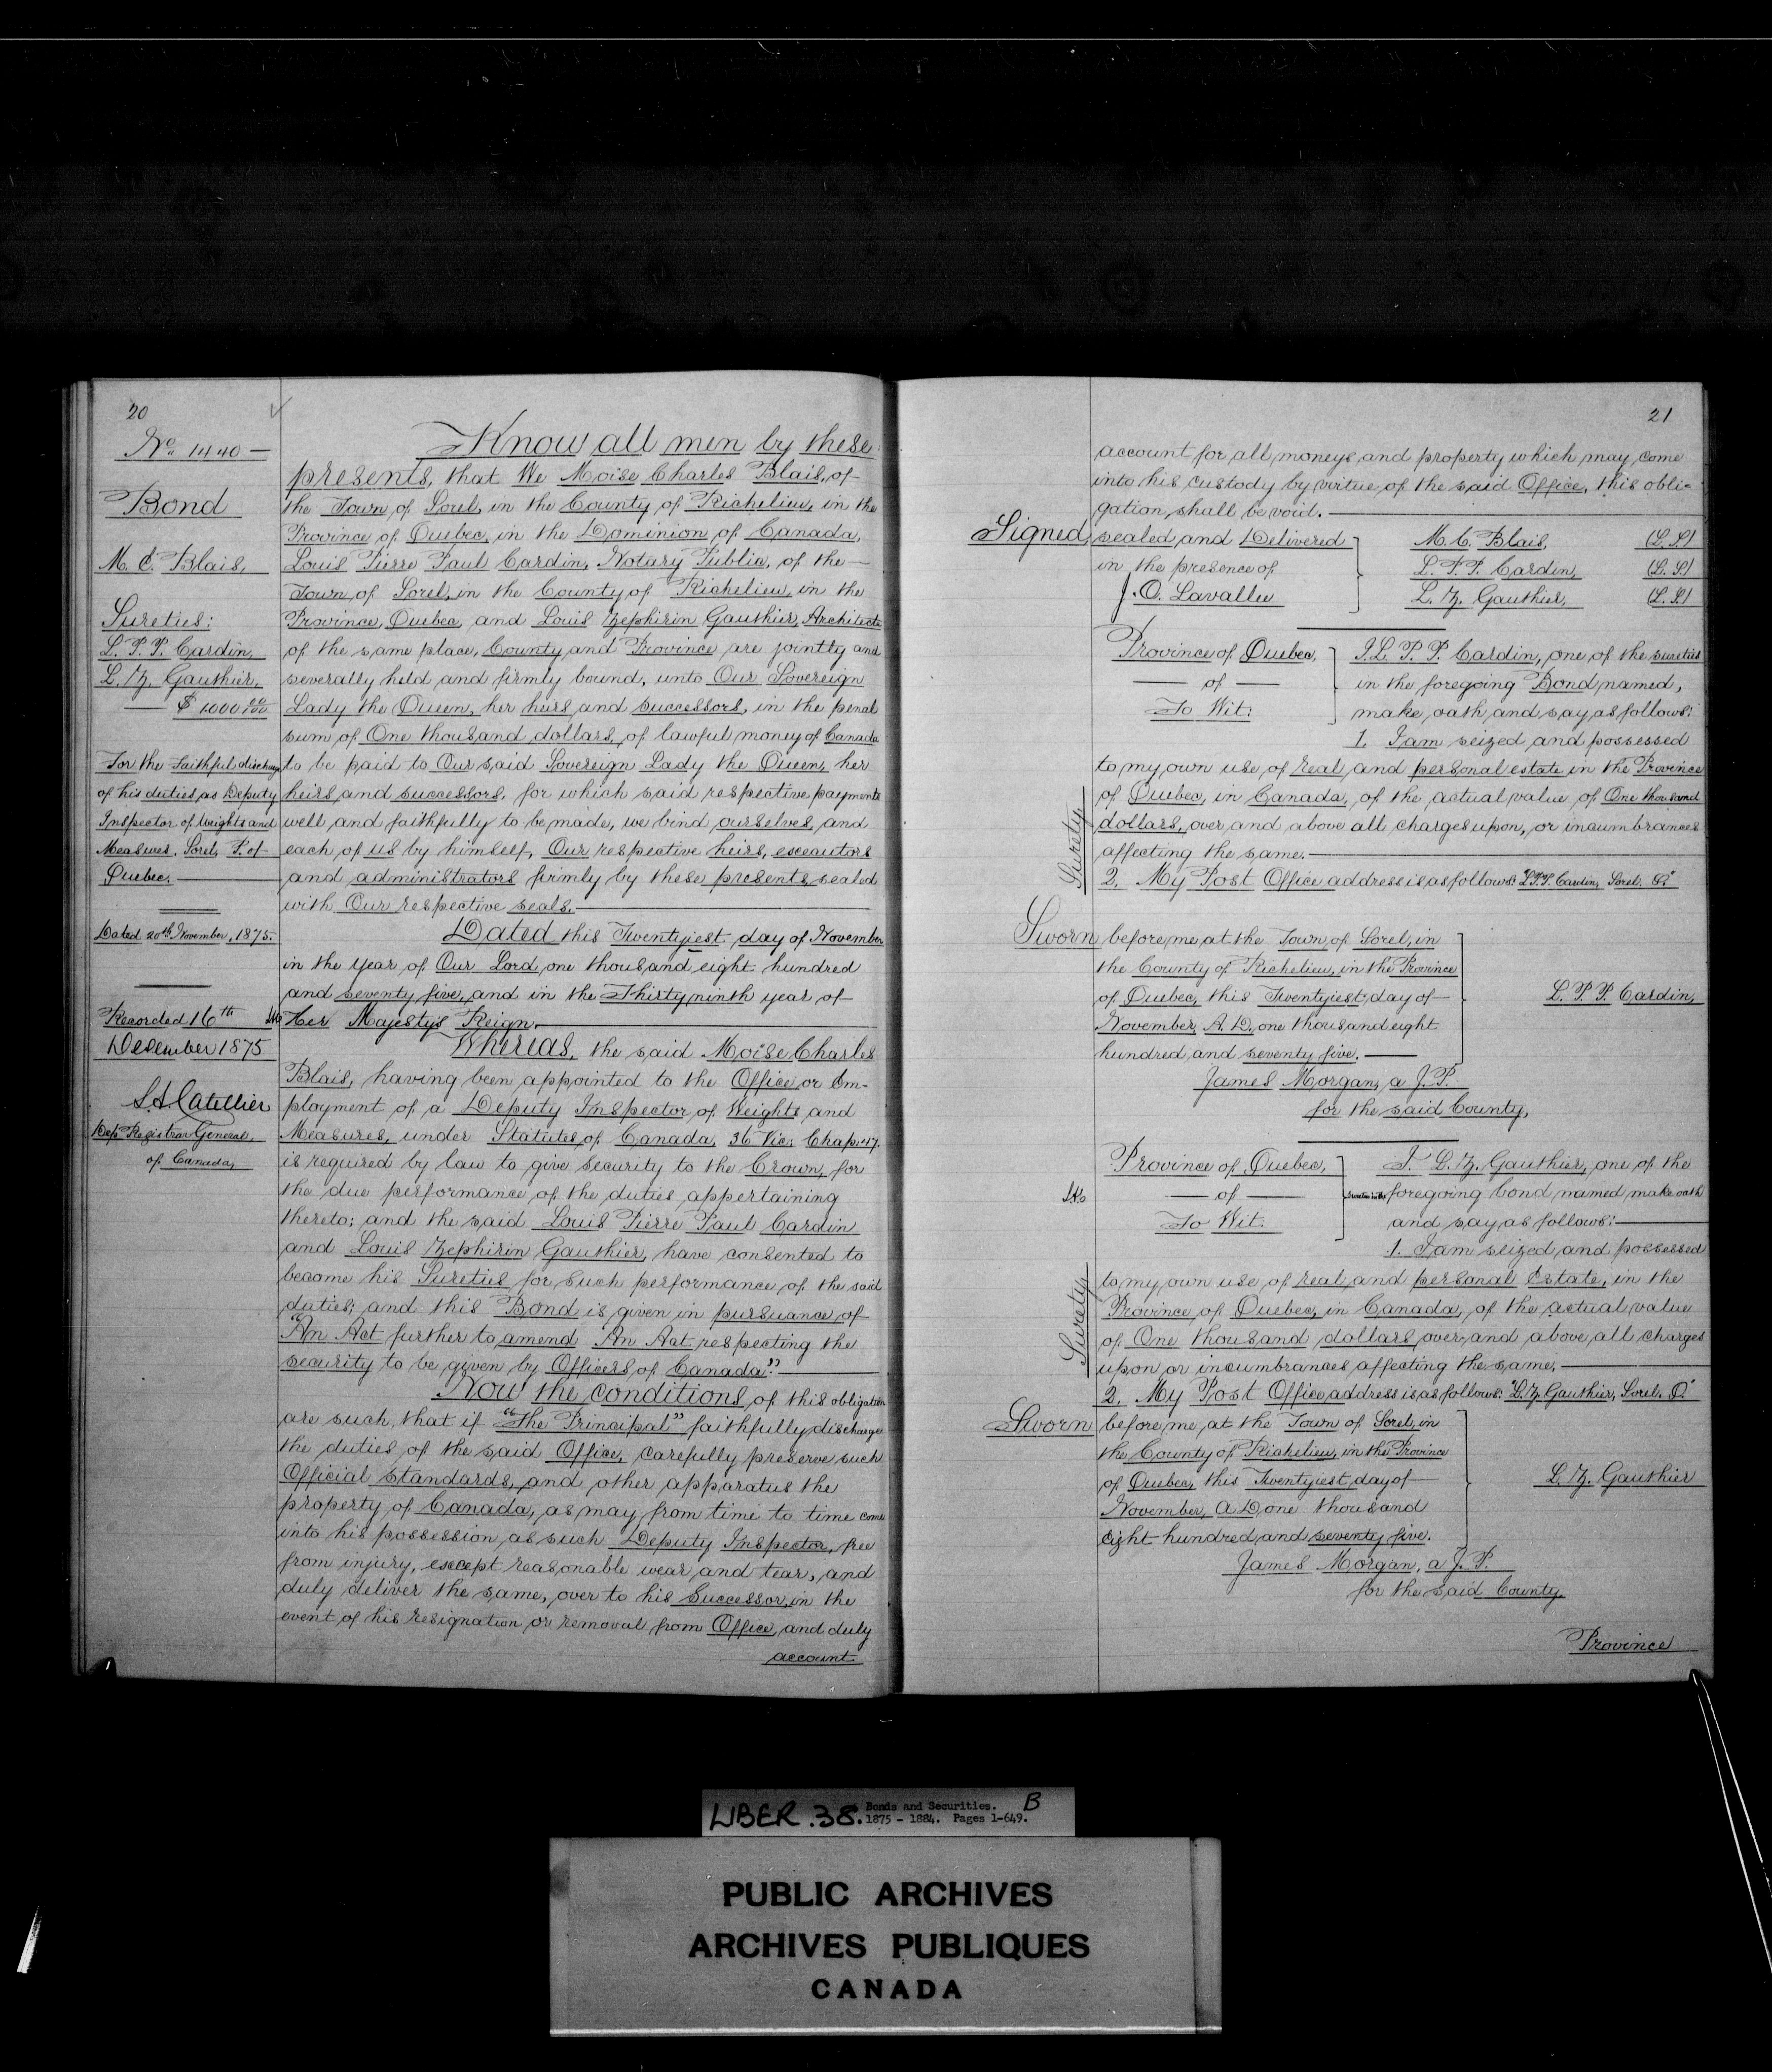 20
No. 1440 —
Bond
M. C. Blais,
Sureties:
L. P. P. Cardin,
L. Z. Gauthier,
— $ 1000 00/100
For the Faithful discharge
of his duties as Deputy
Inspector of Weights and
Measures. Sorel, P. of
Quebec. —
Dated 20th November, 1875.
Recorded 16th
December 1875
L. A. Catellier
Dep. Registrar General,
of Canada,
Know all men by these
presents, that We Moïse Charles Blais, of
the Town of Sorel, in the County of Richelieu, in the
Province of Quebec, in the Dominion of Canada,
Louis Pierre Paul Cardin, Notary Public, of the —
Town of Sorel, in the County of Richelieu, in the
Province Quebec, and Louis Zephirin Gauthier, Architecte
of the same place, County and Province are jointly and
severally held and firmly bound, unto Our Sovereign
Lady the Queen, her heirs and successors, in the penal
sum of One thousand dollars, of lawful money of Canada
to be paid to Our said Sovereign Lady the Queen, her
heirs and successors, for which said respective payments
well and faithfully to be made, we bind ourselves, and
each of us by himself, Our respective heirs, executors
and administrators firmly by these presents, sealed
with Our respective seals. —
Dated this Twentyiest day of November
in the Year of Our Lord one thousand eight hundred
and seventy five, and in the Thirty ninth year of —
Her Majesty's Reign. —
Whereas, the said Moïse Charles
Blais, having been appointed to the Office or Em-
ployment of a Deputy Inspector of Weights and
Measures, under Statutes of Canada, 36 Vic: Chap: 47.
is required by law to give Security to the Crown, for
the due performance of the duties appertaining
thereto; and the said Louis Pierre Paul Cardin
and Louis Zephirin Gauthier, have consented to
become his Sureties for such performance of the said
duties; and this Bond is given in pursuance of
"An Act further to amend An Act respecting the
security to be given by Officers of Canada." —
Now the conditions of this obligation
are such, that if "the Principal" faithfully discharge
the duties of the said Office, carefully preserve such
Official standards, and other apparatus the
property of Canada, as may from time to time come
into his possession, as such Deputy Inspector, free
from injury, except reasonable wear and tear, and
duly deliver the same, over to his Successor, in the
event of his resignation or removal from Office, and duly
account
21
account for all moneys and property which may come
into his custody by virtue of the said Office, this obli-
gation, shall be void. —
Signed, sealed and Delivered M. C. Blais, (L.S.)
in the presence of L. P. P. Cardin, (L.S.)
J. O. Lavallee L. Z. Gauthier, (L.S.)
Province of Quebec, I. L. P. P. Cardin, one of the sureties
— of — in the foregoing Bond named,
To Wit: make oath and say as follows:
1. I am seized and possessed
to my own use of real and personal estate in the Province
of Quebec, in Canada, of the actual value of One thousand
dollars, over and above all charges upon, or incumbrances
affecting the same. —
Surety
2. My Post Office address is as follows: "L.P.P. Cardin, Sorel. Q."
Sworn before me at the Town of Sorel, in
the County of Richelieu, in the Province
of Quebec, this Twentyiest day of — L. P. P. Cardin,
November, A. D. one thousand eight
hundred and seventy five. —
James Morgan, a J. P.
for the said County,
Province of Quebec, I. L. Z. Gauthier, one of the
— of — sureties in the foregoing bond named make oath
To Wit. and say as follows: —
1. I am seized and possessed
to my own use of real and personal Estate, in the
Province of Quebec, in Canada, of the actual value
of One thousand dollars over and above all charges
upon or incumbrances affecting the same. —
Surety
2. My Post Office address is as follows: "L. Z. Gauthier, Sorel. Q."
Sworn before me, at the Town of Sorel, in
the County of Richelieu, in the Province
of Quebec, this Twentyiest day of — L. Z. Gauthier
November, A D, one thousand
eight hundred and seventy five.
James Morgan, a J. P.
for the said County.
Province
LIBER. 38. Bonds and Securities. B
1875 - 1884. Pages 1-649.
PUBLIC ARCHIVES
ARCHIVES PUBLIQUES
CANADA